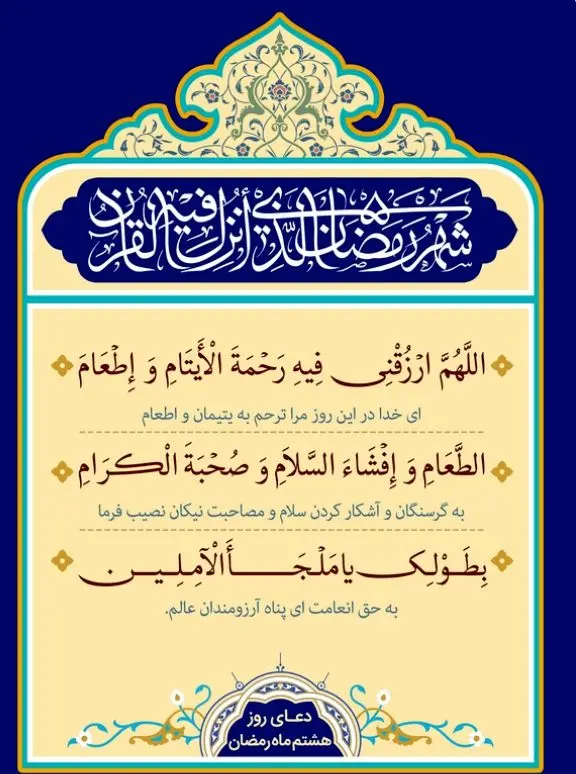 شهر رمضان الذي أنزل فيه القرآن
اللَّهُمَّ ارْزُقْنِی فِیهِ رَحْمَةَ الْأَیتَامِ وَ إِطْعَامَ
ای خدا در این روز مرا ترحم به یتیمان و اطعام
الطَّعَامِ وَ إِفْشَاءَ السَّلاَمِ وَ صُحْبَةَ الْکِرَامِ
به گرسنگان و آشکار کردن سلام و مصاحبت نیکان نصیب فرما
بِطَوْلِکَ یا مَلْجَأَ الْآمِلِینَ
به حق انعامت ای پناه آرزومندان عالم.
دعای روز
هشتم ماه رمضان